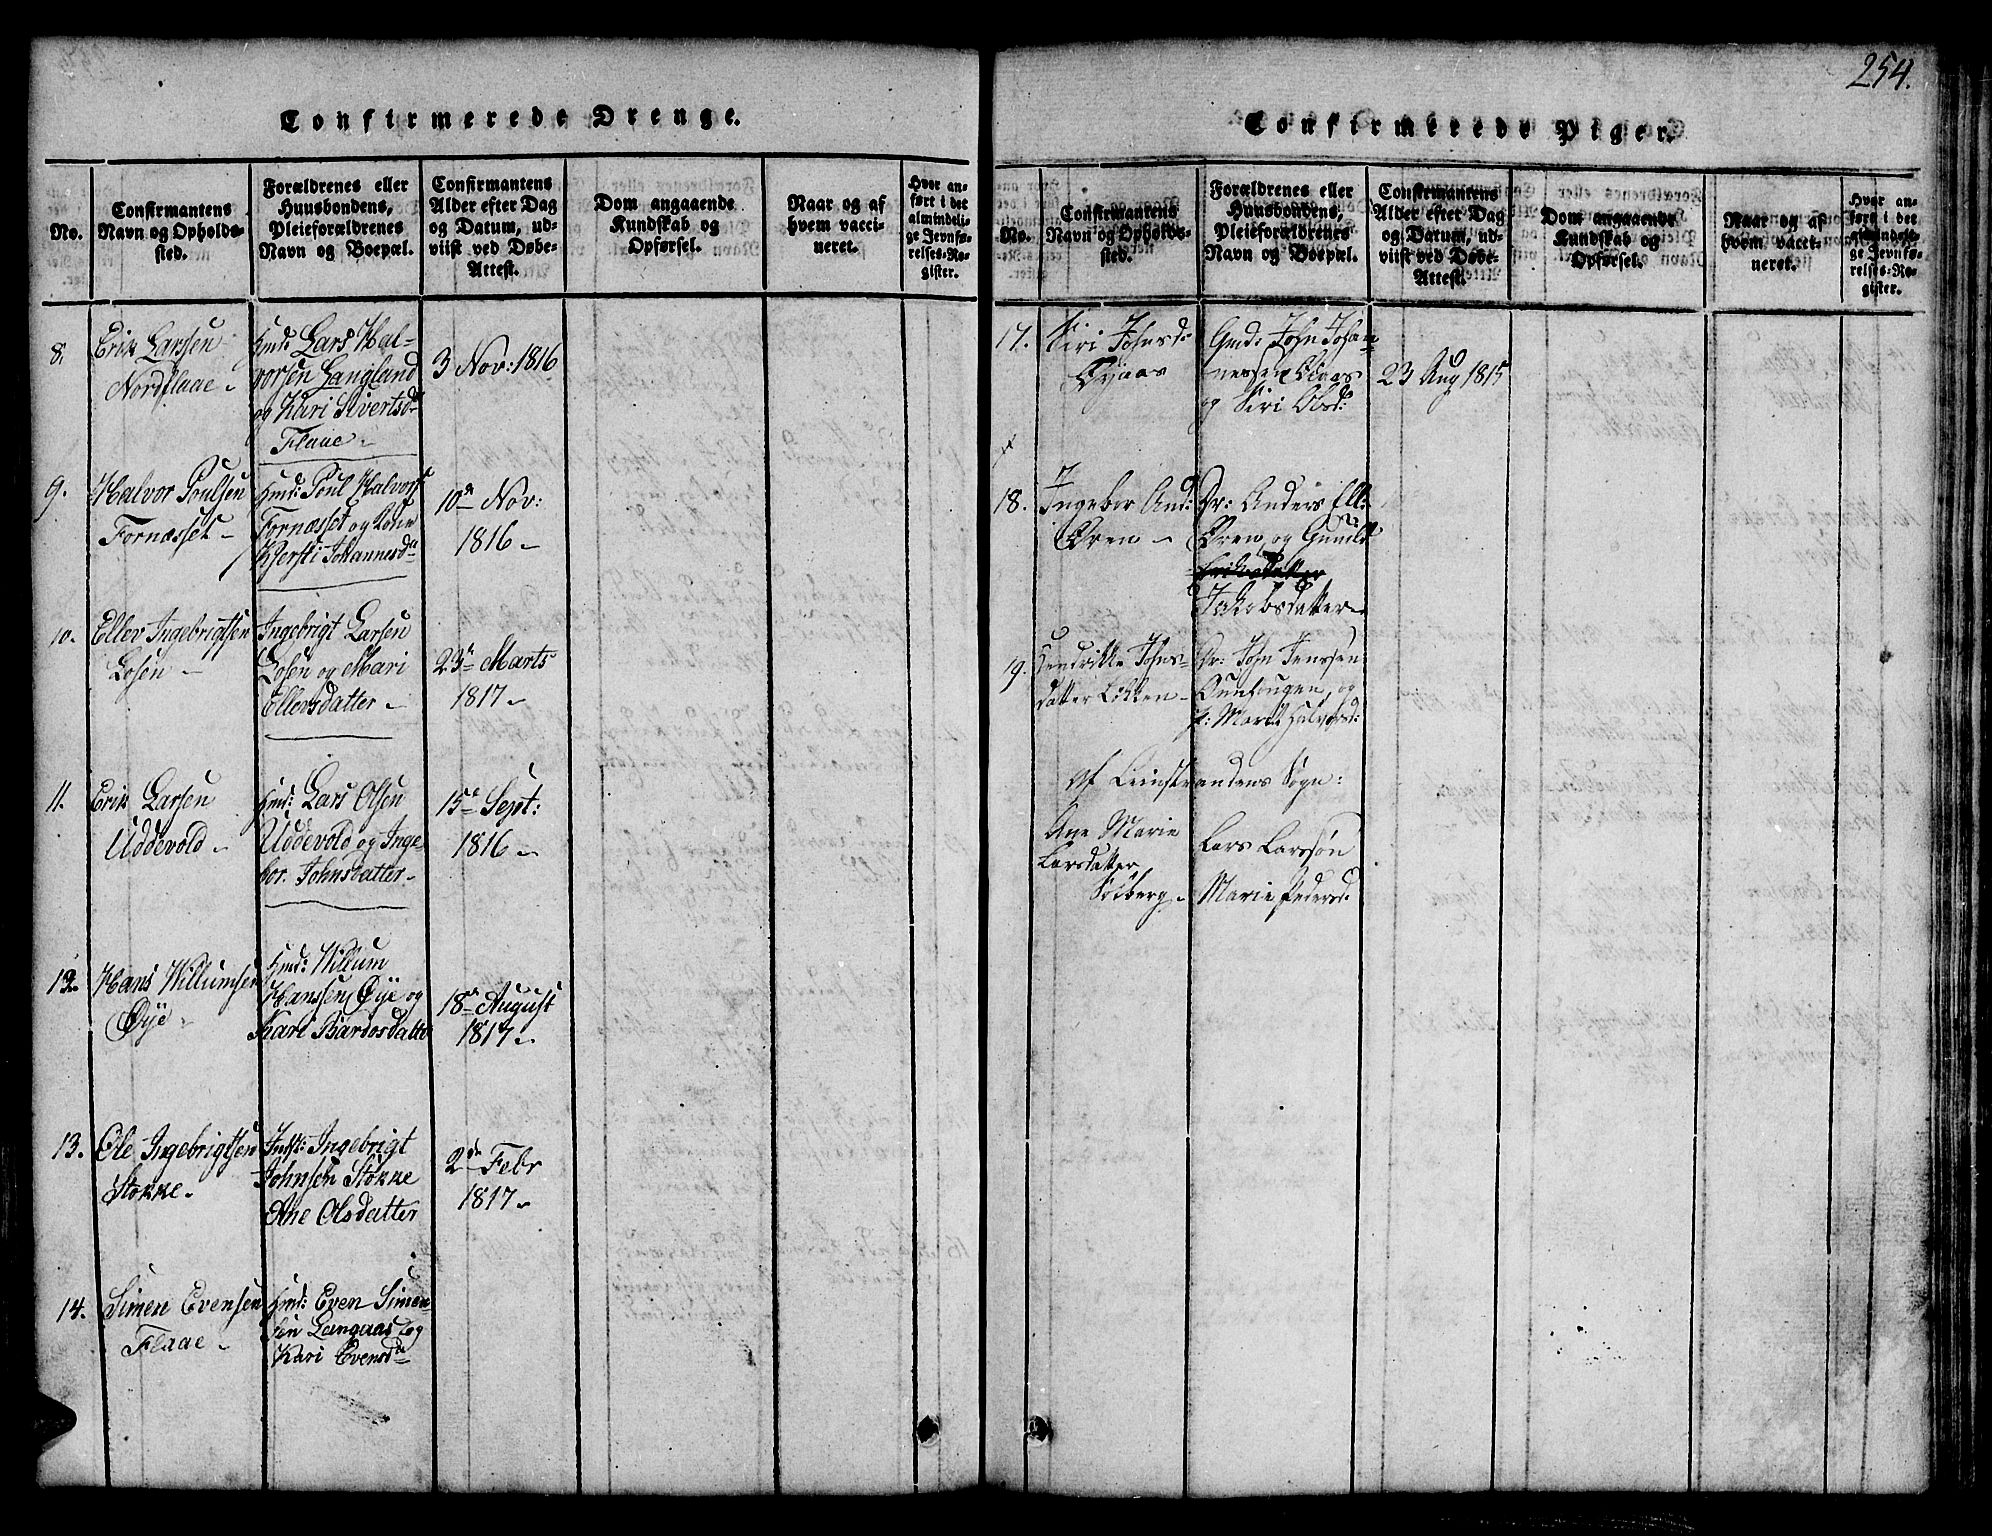 254.
Confirmerede Drenge.
No.
Confirmantens
Navn og Opholds-
sted.
Forældrenes eller
Huusbondens,
Pleieforældrenes
Navn og Boepæl.
Confirmantens
Alder efter Dag
og Datum, ud-
viist ved Døbe-
Attest.
Dom angaaende
Kundskab og
Opførsel.
Naar og af
hvem vacci-
neret.
Hvor an-
ført i det
almindeli-
ge Jevnfø-
relses-Re-
gister.
8.
Erik Larssen
Nordflaae
Gmd: Lars Hal-
vorsen Langland
og Kari Sivertsd
Flaae
3 Nov: 1816
9.
Halvor Poulsen
Fornæsset
Gmd: Poul Halvors
Fornæsset og Kone
Kjersti Johannesd
10de Nov:
1816
10.
Ellev Ingebrigtsen
Losen
Ingebrigt Larsen
Losen og Mari
Ellevsdatter
23de Marts
1817
11.
Erik Larsen
Uddevold
Gmd: Lars Olsen
Uddevold og Inge-
bor. Johnsdatter
15de Sept:
1816
12.
Hans Willumsen
Øye
Gmd: Willum
Hanssen Øye og
Kari Bardosdatter
18de August
1817
13.
Ole Ingebrigtsen
Stokke
Inst: Ingebrigt
Johnsen Stokke
Ane Olsdatter
2de Febr
1817
14.
Simen Evensen
Flaae
Gmd: Even Simen-
sen Langaas og
Kari Evensd
Confirmerede Piger.
No.
Confirmantens
Navn og Opholds-
sted.
Forældrenes eller
Huusbondens,
Pleieforældrenes
Navn og Boepæl.
Confirmantens
Alder efter Dag
og Datum, ud-
viist ved Døbe-
Attest.
Dom angaaende
Kundskab og
Opførsel.
Naar og af
hvem vacci-
neret.
Hvor an-
ført i det
almindeli-
ge Jevnfø-
relses-Re-
gister.
17.
Siri Johnsd:
Gmd: John Johan-
nessen
og Siri Olsd:
23 Aug 1815
18.
Ingebor And:
Øren
Gr: Anders Ell:
Øren, og Gunild
Eriksdatter
Jakobsdatter
19.
Hendrikke Johns-
datter Løkken
Gr: John Jenssen
og
p: Marit Halvorsd:
Af Leinstrandens Sogn:
Ane Marie
Larsdatter
Solberg
Lars Larssøn
Marie Pedersd: